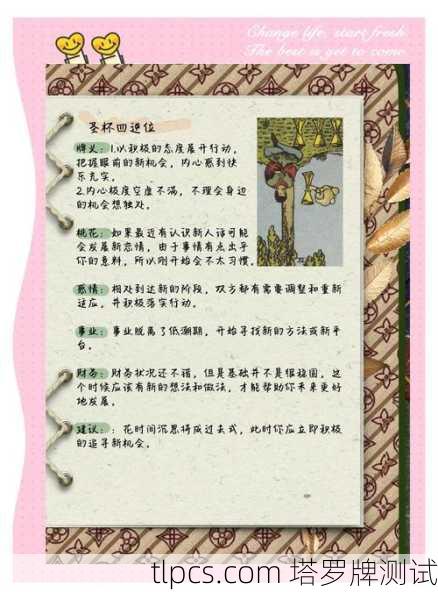 Change life, start fresh
The best is yet to come
圣杯四逆位
牌义：1.以积极的态度展开行动，
把握眼前的新机会，内心感到快
乐充实。
2.内心极度空虚不满，不理会身边
的机会想独处。
桃花：如果最近有认识新人话可能
会发展新恋情，由于事情有点出乎
你的意料，所以刚开始会不太习惯。
感情：相处到达新的阶段，双方都有需要调整和重新
适应，并积极落实行动。
事业：事业脱离了低潮期，开始寻找新的方法或新平
台。
财务：财务状况还不错，但是基础并不是很稳固，这
个时候应该有新的想法和做法，才能帮助你未来更好
地发展。
建议：：花时间沉思将成过去式，此时你应立即积极
的追寻新机会。
tlpcs.com 塔罗牌测试